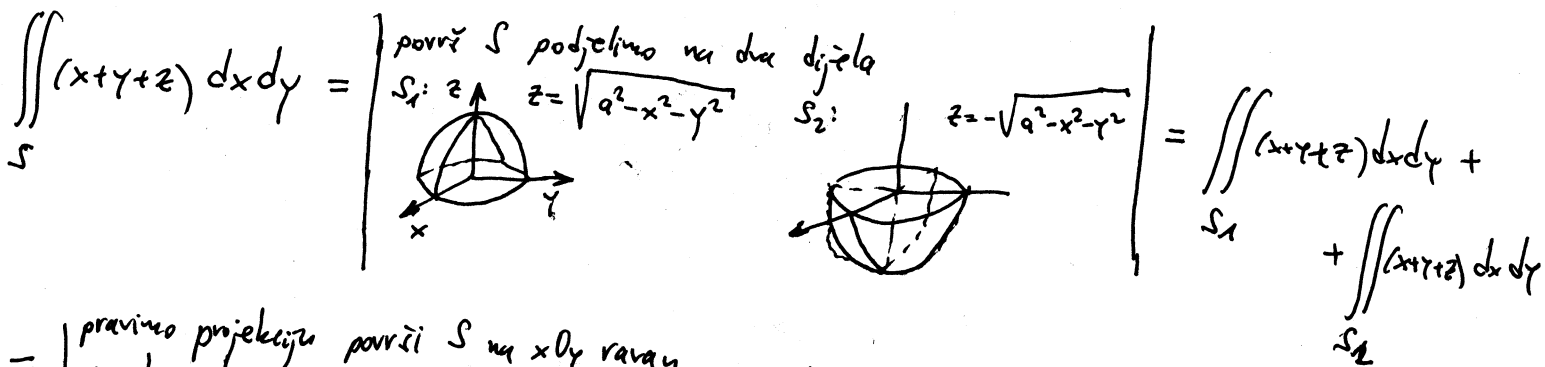 ∬_S (x+y+z) dx dy = | površ S podjelimo na dva dijela
S₁: z z=√(a²-x²-y²) S₂: z=-√(a²-x²-y²) | = ∬_{S₁} (x+y+z) dx dy +
x y
+ ∬_{S₂} (x+y+z) dx dy
= | pravimo projekciju površi S na xOy ravan